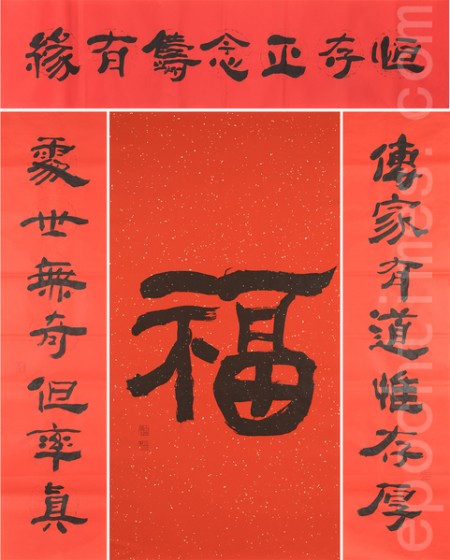 恒存正念有緣
傳家有道惟存厚
福
處世無奇但率真
epochtimes.com